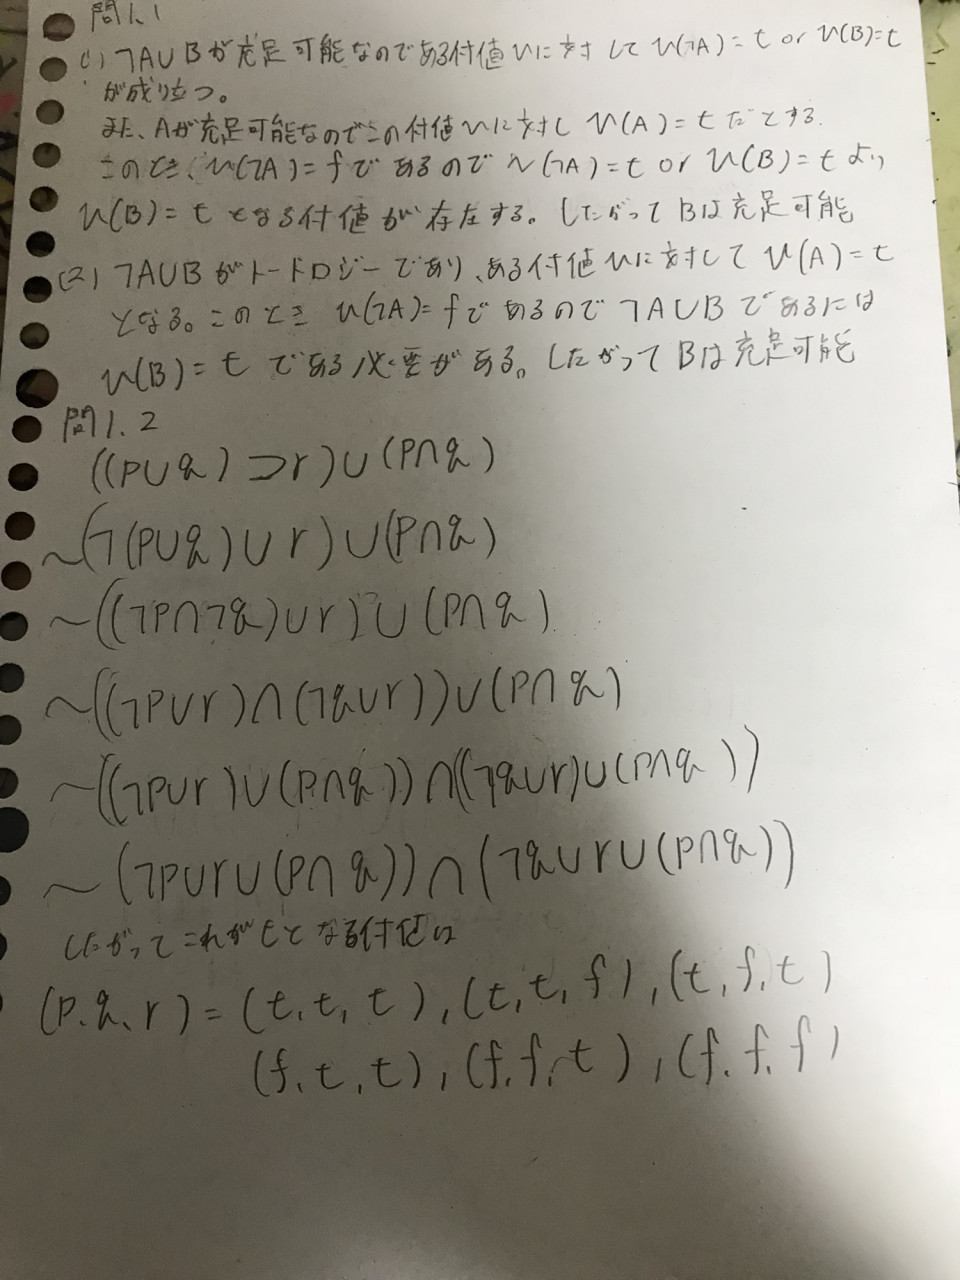 問1.1
(1) ¬A∪Bが充足可能なのである付値vに対してv(¬A)=t or v(B)=t
が成り立つ。
また、Aが充足可能なのでこの付値vに対しv(A)=tだとする.
このとき、v(¬A)=fであるのでv(¬A)=t or v(B)=tより
v(B)=tとなる付値が存在する。したがってBは充足可能
(2) ¬A∪Bがトートロジーであり、ある付値vに対してv(A)=t
となる。このときv(¬A)=fであるので¬A∪Bであるには
v(B)=tである必要がある。したがってBは充足可能
問1.2
((p∪q)⊃r)∪(p∩q)
~(¬(p∪q)∪r)∪(p∩q)
~((¬p∩¬q)∪r)∪(p∩q)
~((¬p∪r)∩(¬q∪r))∪(p∩q)
~((¬p∪r)∪(p∩q))∩((¬q∪r)∪(p∩q))
~(¬p∪r∪(p∩q))∩(¬q∪r∪(p∩q))
したがってこれがtとなる付値は
(p.q.r)=(t,t,t),(t,t,f),(t,f,t)
(f,t,t),(f,f,t),(f,f,f)